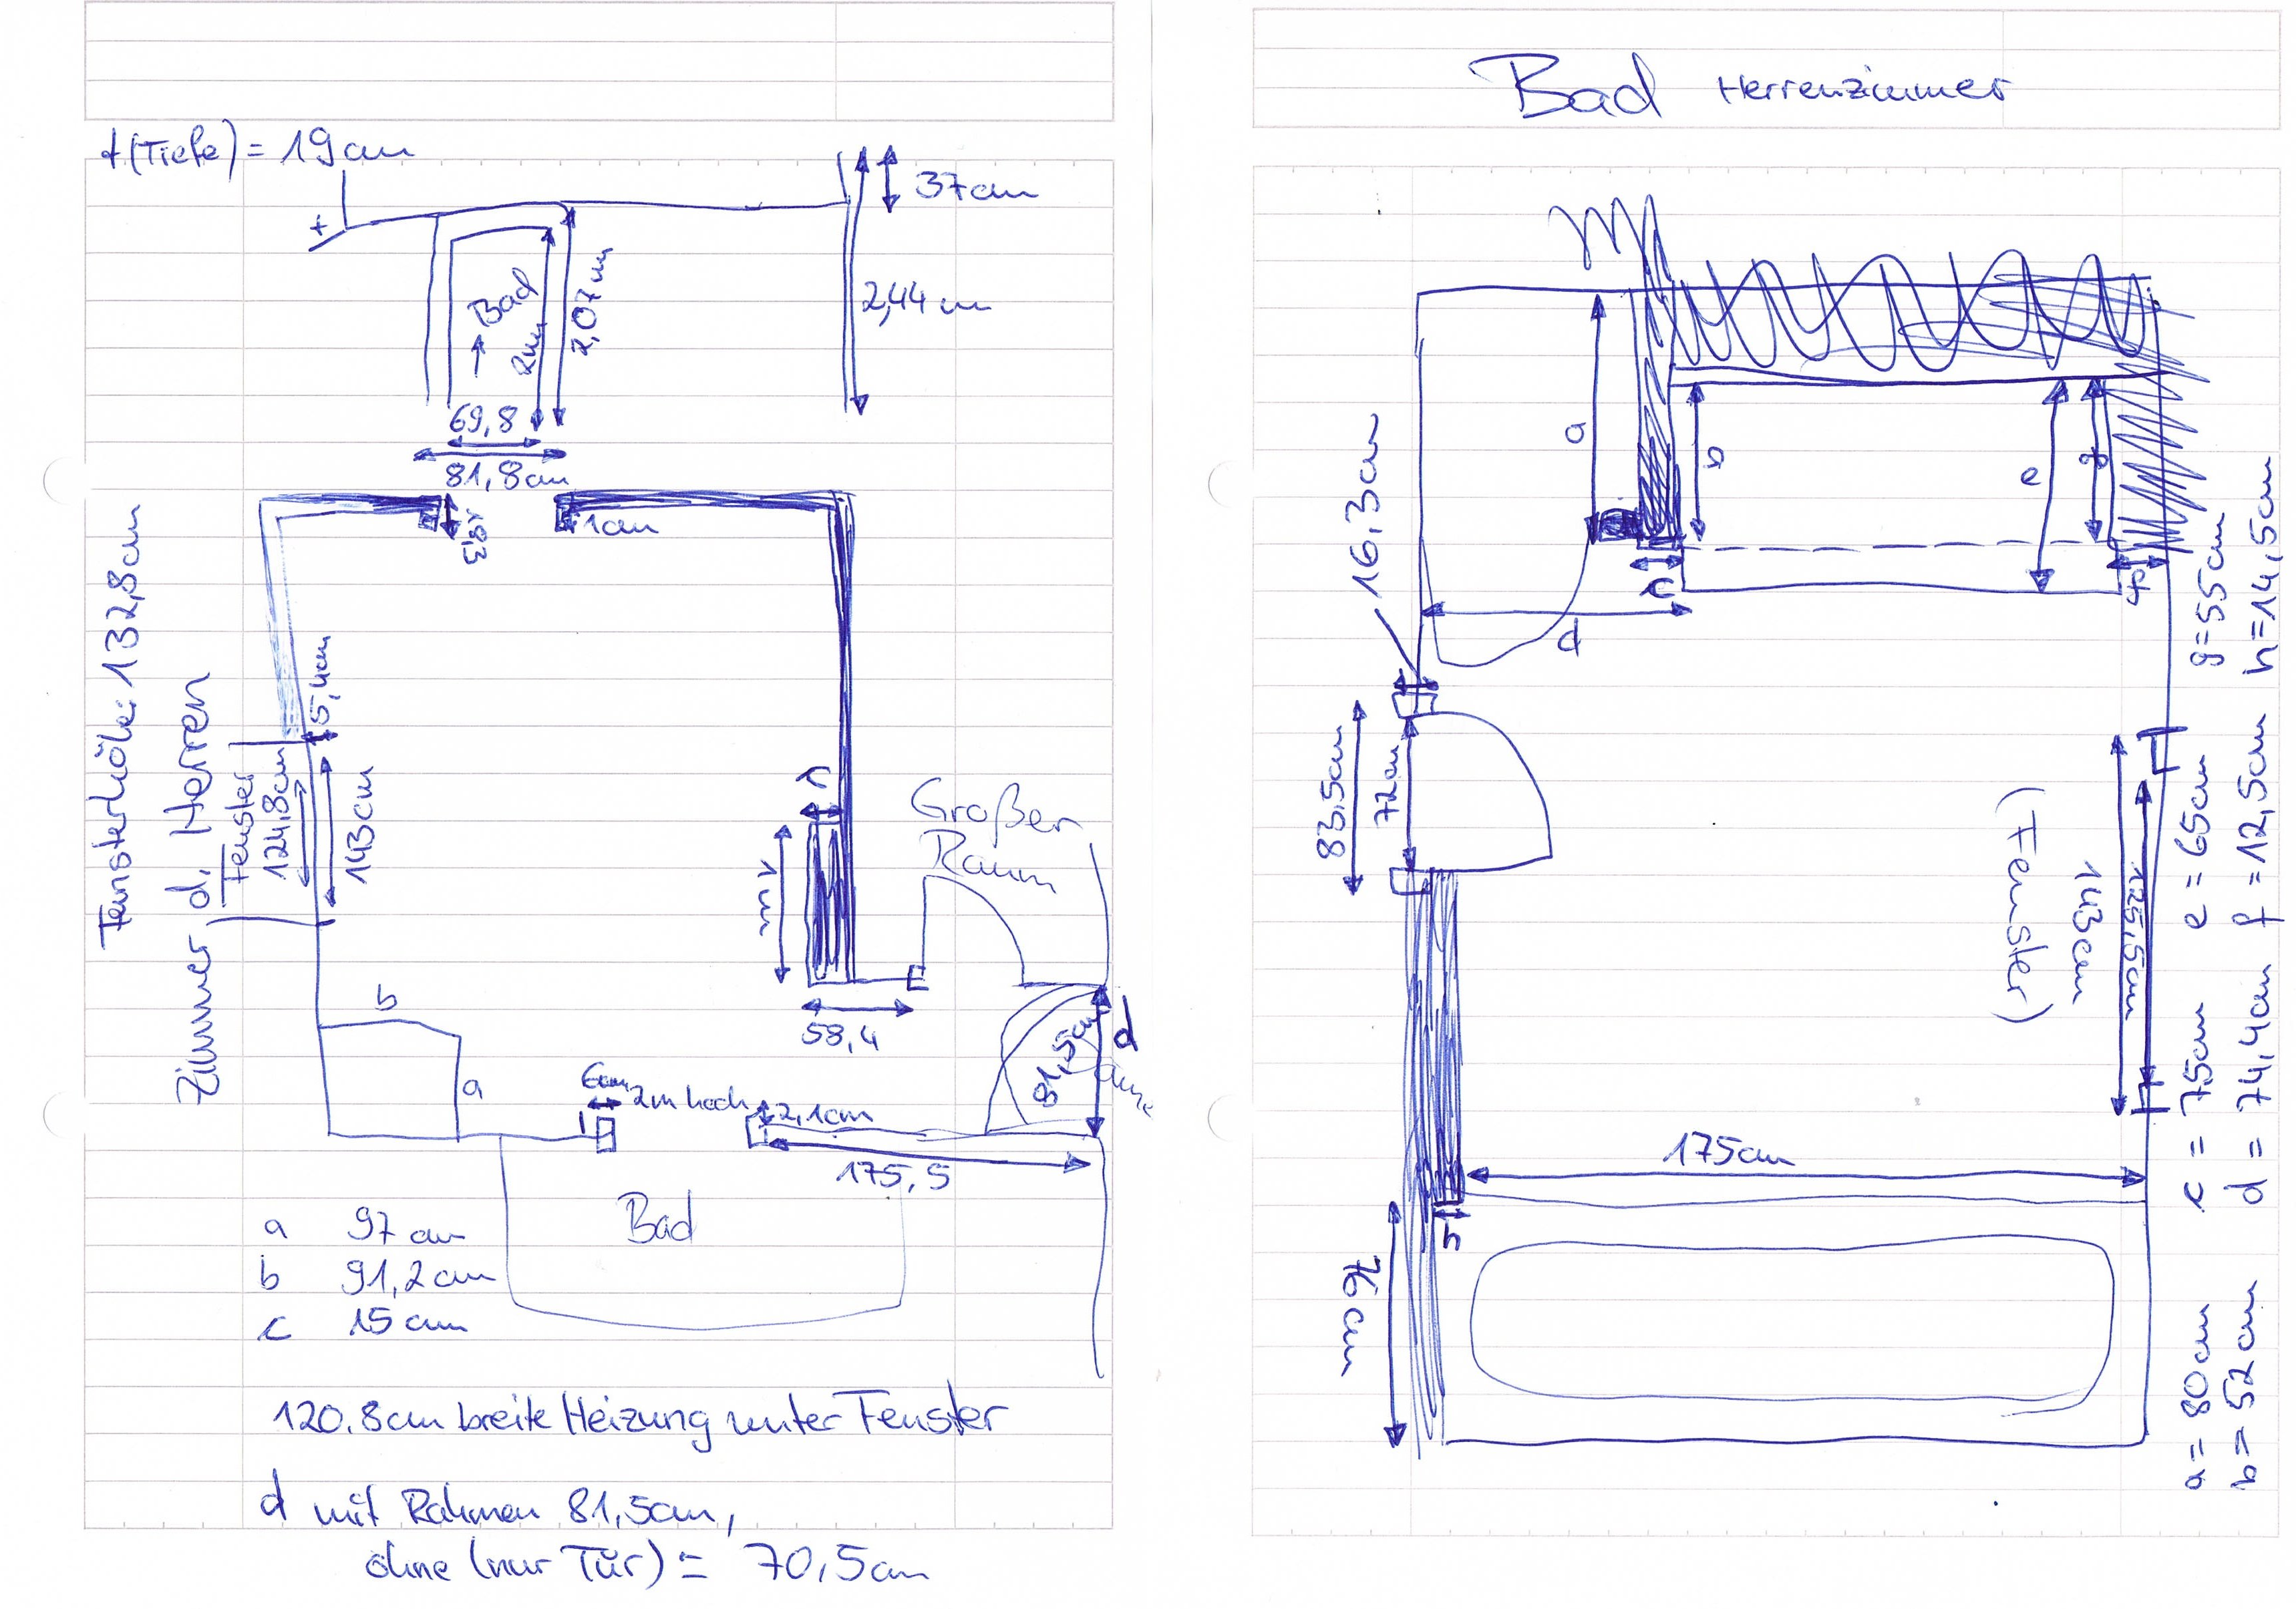 t (Tiefe) = 19cm
t
37cm
2,44m
→ Bad
2m
2,07m
69,8
81,8cm
19,3
1cm
Fensterhöhe: 132,8cm
Zimmer d. Herren
5,4cm
Fenster
124,8cm
143cm
c
1m
Großer
Raum
58,4
b
a
6cm
2m hoch
2,1cm
81,5cm
d
175,5
Bad
a 97 cm
b 91,2cm
c 15 cm
120,8cm breite Heizung unter Fenster
d mit Rahmen 81,5cm,
ohne (nur Tür) = 70,5cm
Bad Herrenzimmer
16,3cm
a
b
e
g
h
f
d
83,5cm
72cm
(Fenster)
143cm
125,5cm
175cm
h
76cm
a = 80cm c = 75cm e = 65cm g = 55cm
b = 52cm d = 74,4cm f = 12,5cm h = 14,5cm